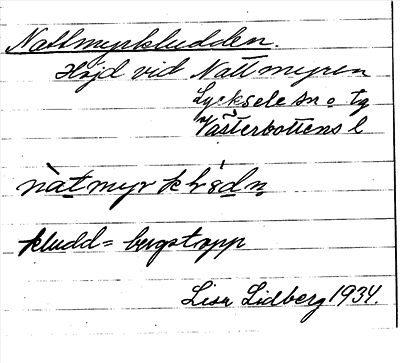 Nattmyrkludden.
Höjd vid Nattmyren
Lycksele sn o tg
Västerbottens l
kludd = bergstopp
Lisa Lidberg 1934.